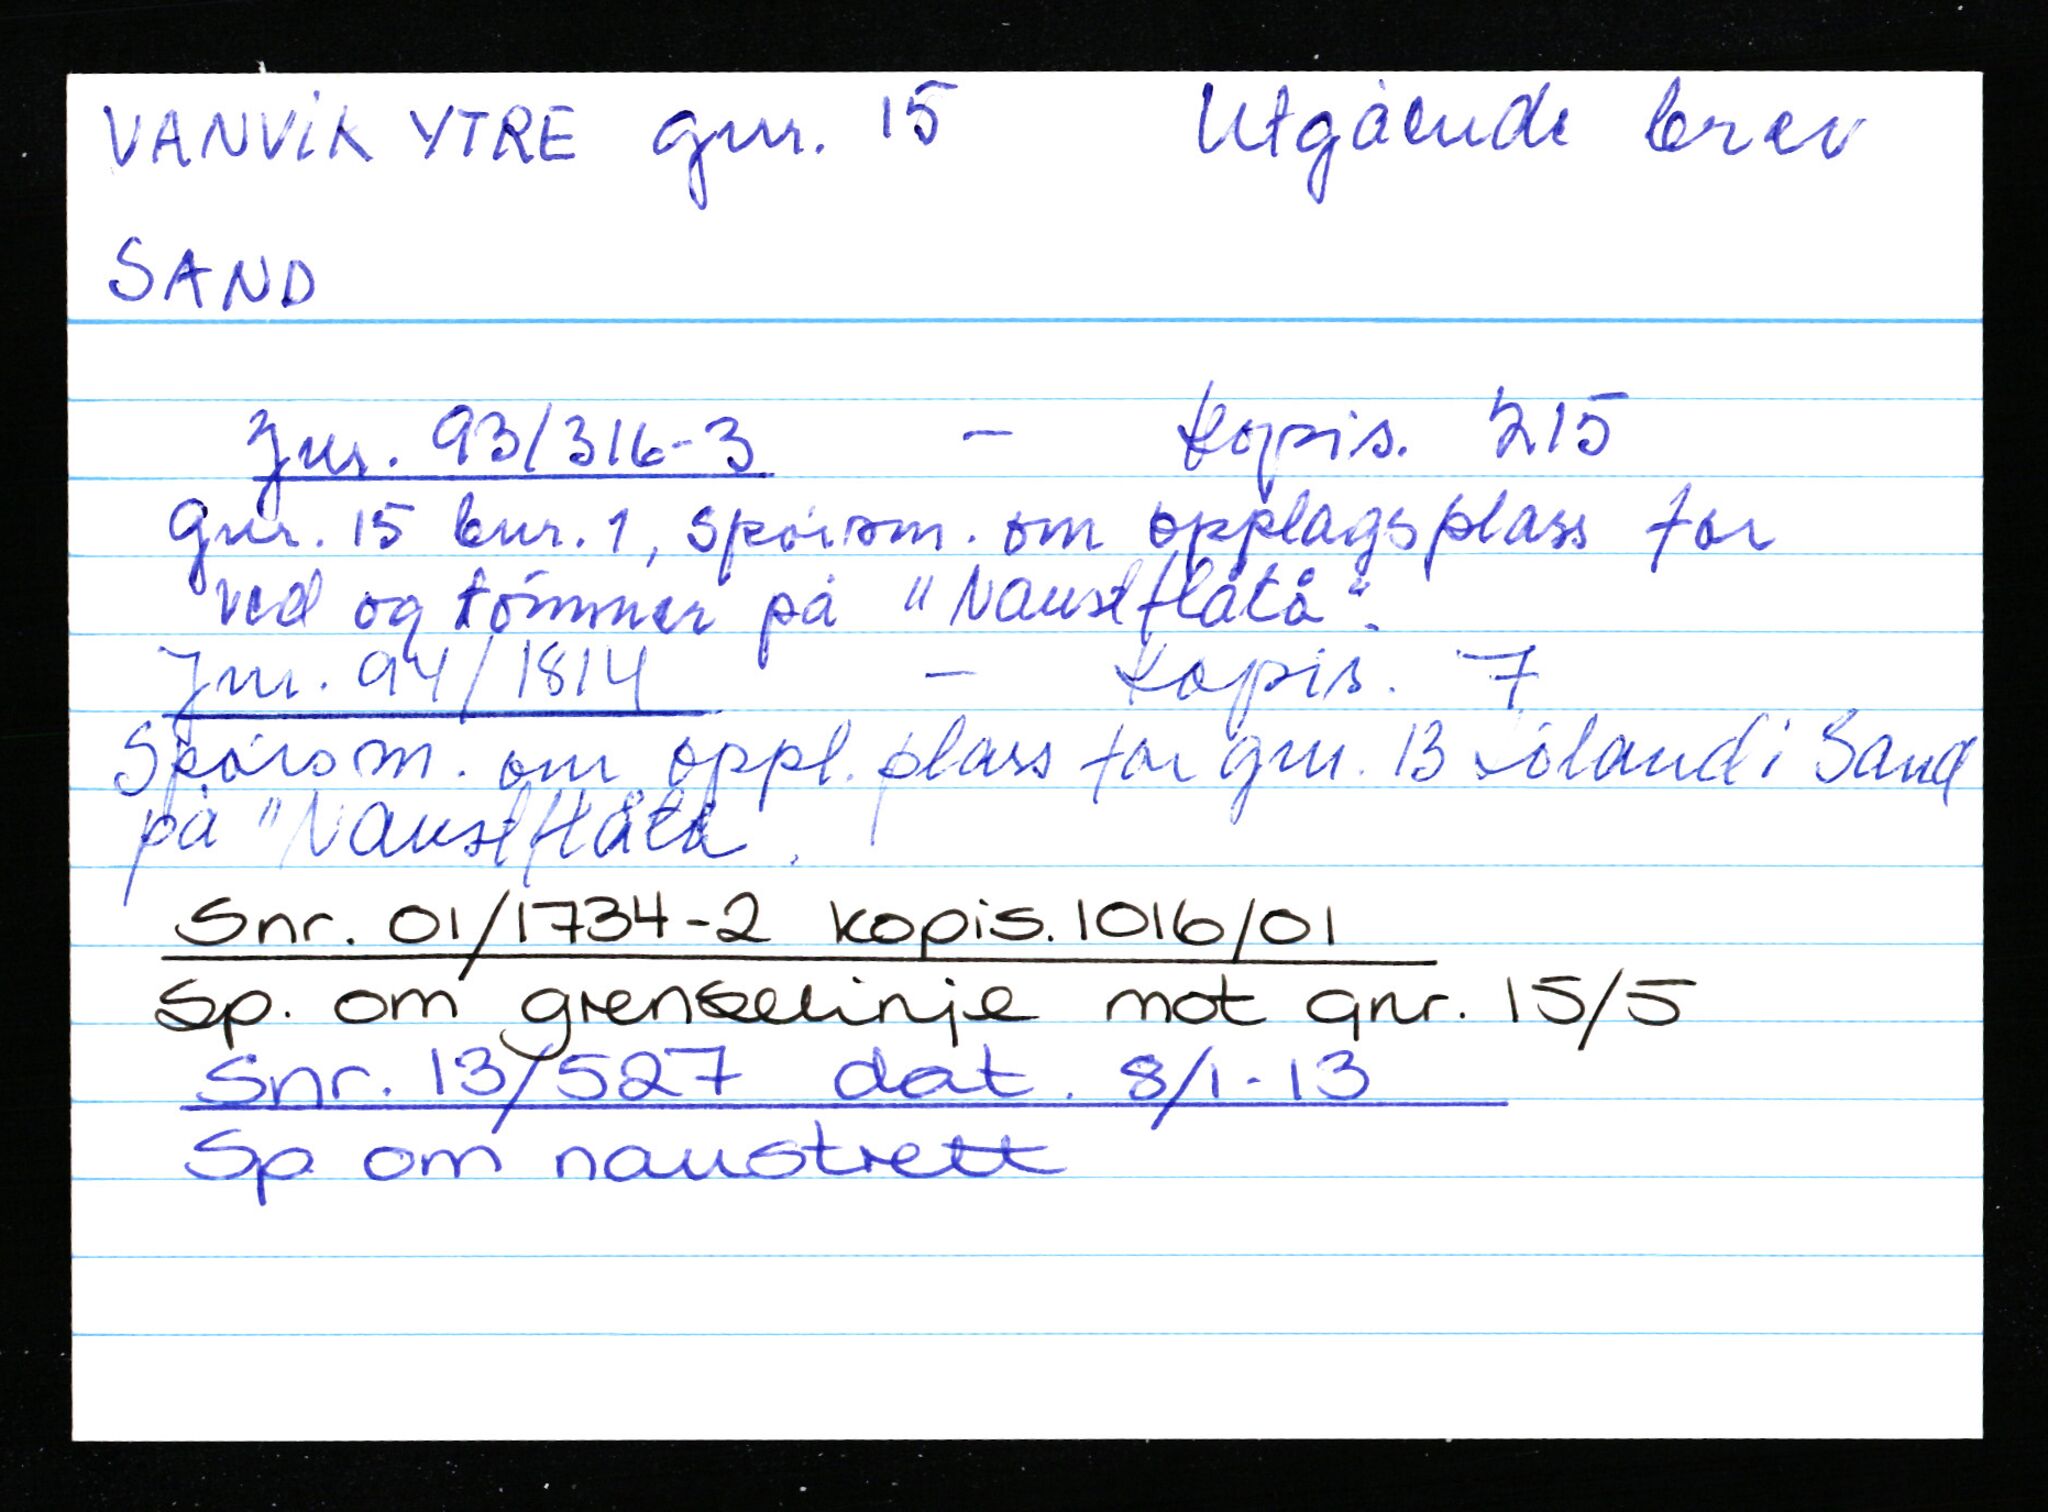 VANVIK YTRE gnr. 15 Utgående brev
SAND
Jnr. 93/316-3 - kopis. 215
gnr. 15 bnr. 1, spørsm. om opplagsplass for
ved og tømmer på "Naustflåtå".
Jnr. 94/1814 - kopis. 7
Spørsm. om oppl. plass for gnr. 13 i Sand
på "Naustflåtå.
Snr. 01/1734-2 kopis. 1016/01
Sp. om grenselinje mot gnr. 15/5
Snr. 13/527 dat. 8/1-13
Sp om naustrett